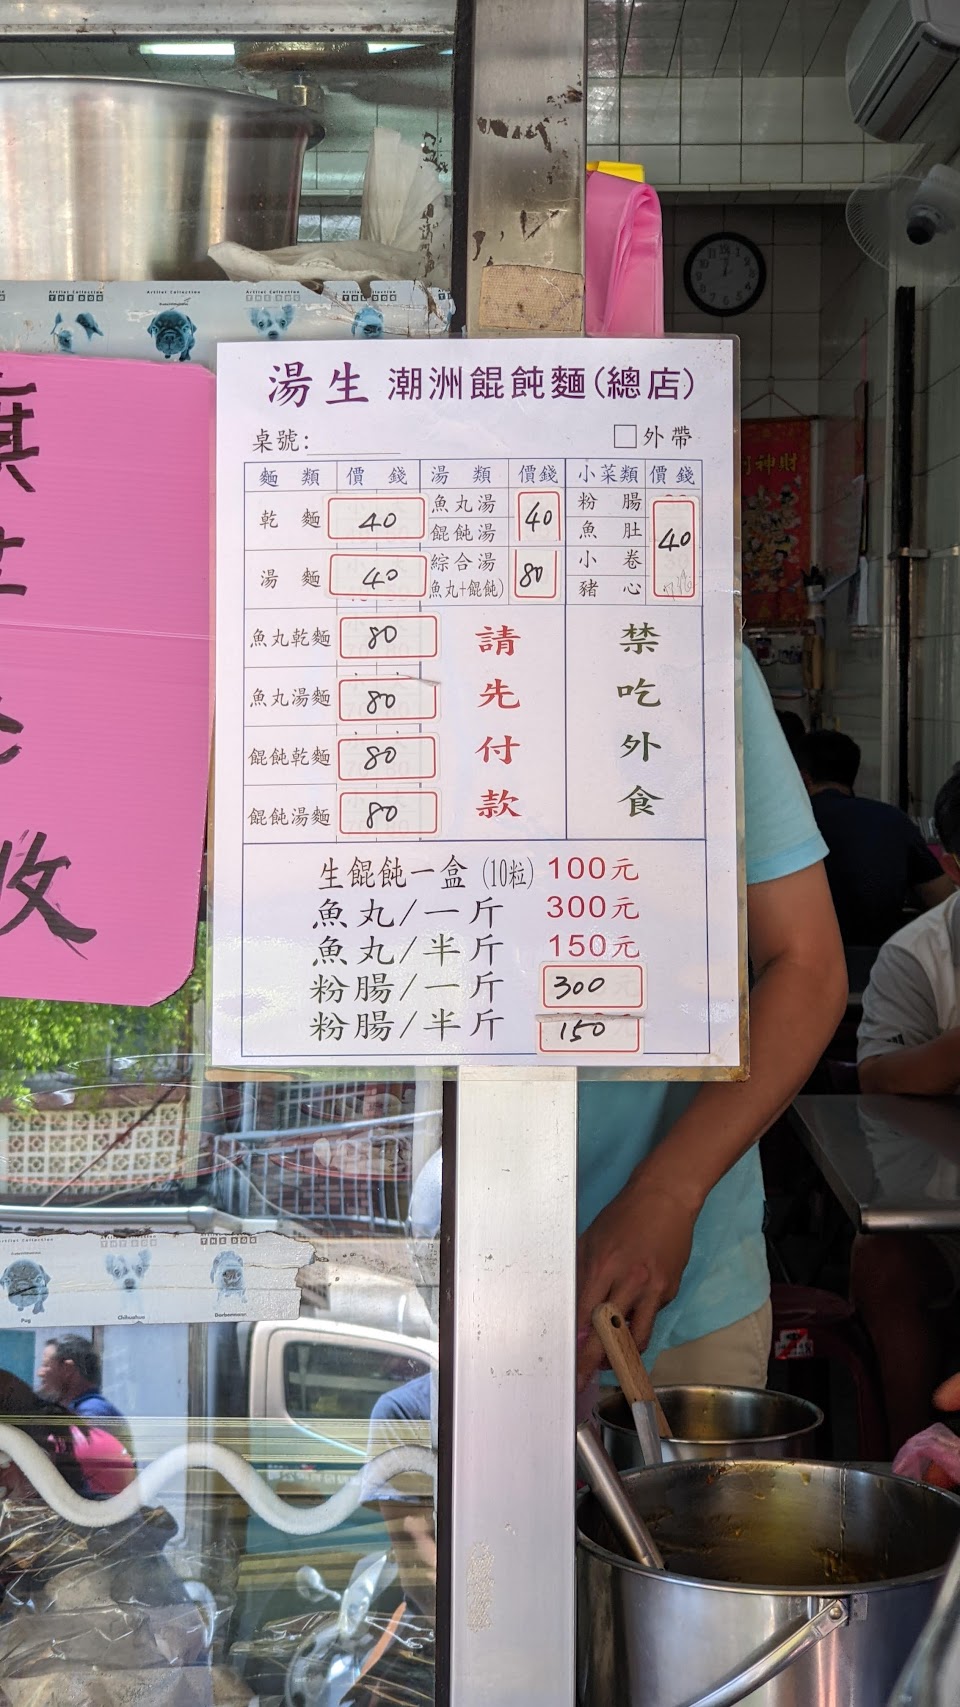 湯生 潮洲餛飩麵(總店)
桌號:
□外帶
麵類 價錢 湯類 價錢 小菜類 價錢
乾麵 40 魚丸湯 餛飩湯 40 粉腸 魚肚 小卷 豬心 40
湯麵 40 綜合湯 (魚丸+餛飩) 80
魚丸乾麵 80
魚丸湯麵 80
餛飩乾麵 80
餛飩湯麵 80
請先付款
禁吃外食
生餛飩一盒(10粒) 100元
魚丸/一斤 300元
魚丸/半斤 150元
粉腸/一斤 300
粉腸/半斤 150
收
Artlist Collection
THE DOG
Pug
Chihuahua